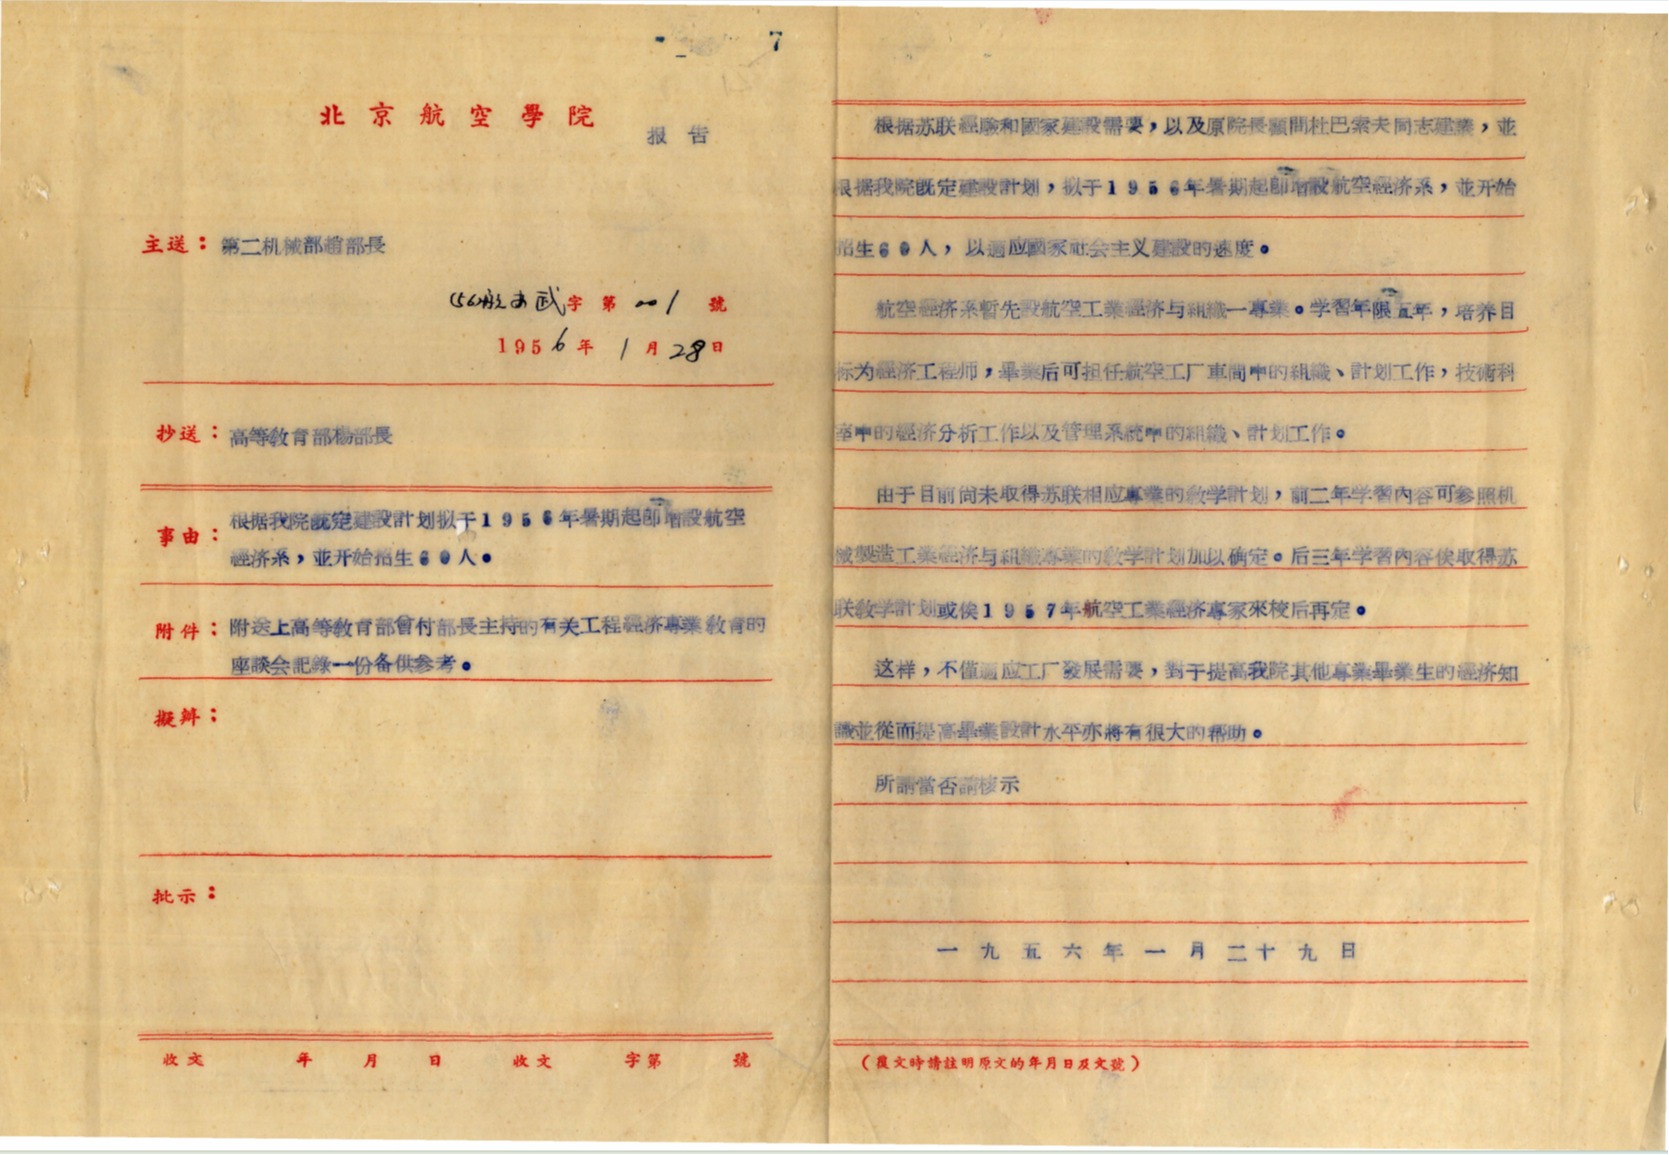 7
北京航空學院
报告
主送：第二机械部趙部長
字第001號
1956年1月28日
抄送：高等教育部楊部長
事由：根据我院既定建設計划拟于1956年暑期起即增設航空
經济系，並开始招生60人。
附件：附送上高等教育部曾付部長主持的有关工程經济專業教育的
座談会記錄一份备供参考。
擬辦：
批示：
收文 年 月 日 收文 字第 號
根据苏联經驗和國家建設需要，以及原院長顧問杜巴索夫同志建議，並
根据我院既定建設計划，拟于1956年暑期起即增設航空經济系，並开始
招生60人，以適应國家社会主义建設的速度。
航空經济系暫先設航空工業經济与組織一專業。学習年限五年，培养目
标为經济工程师，畢業后可担任航空工厂車間中的組織、計划工作，技術科
室中的經济分析工作以及管理系統中的組織、計划工作。
由于目前尚未取得苏联相应專業的教学計划，前二年学習內容可参照机
械製造工業經济与組織專業的教学計划加以确定。后三年学習內容俟取得苏
联教学計划或俟1957年航空工業經济專家來校后再定。
这样，不僅適应工厂發展需要，對于提高我院其他專業畢業生的經济知
識並從而提高畢業設計水平亦將有很大的帮助。
所請當否請核示
一九五六年一月二十九日
（覆文時請註明原文的年月日及文號）